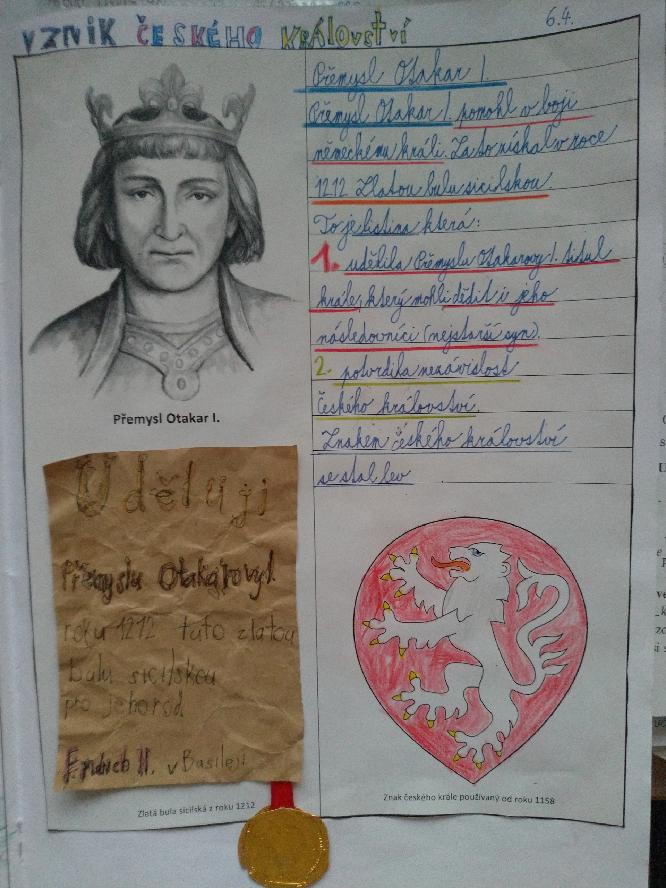 VZNIK ČESKÉHO KRÁLOVSTVÍ
6.4.
Přemysl Otakar I.
Přemysl Otakar I. pomohl v boji
německému králi. Za to získal v roce
1212 Zlatou bulu sicilskou.
To je listina která:
1. udělila Přemyslu Otakarovy I. titul
krále, který mohli dědit i jeho
následovníci (nejstarší syn).
2. potvrdila nezávislost
českého království.
Znakem českého království
se stal lev
Přemysl Otakar I.
Uděluji
Přemyslu Otakarovy I.
roku 1212 tuto zlatou
bulu sicilskou
pro jeho rod
II. v Basileji
Zlatá bula sicilská z roku 1212
Znak českého krále používaný od roku 1158